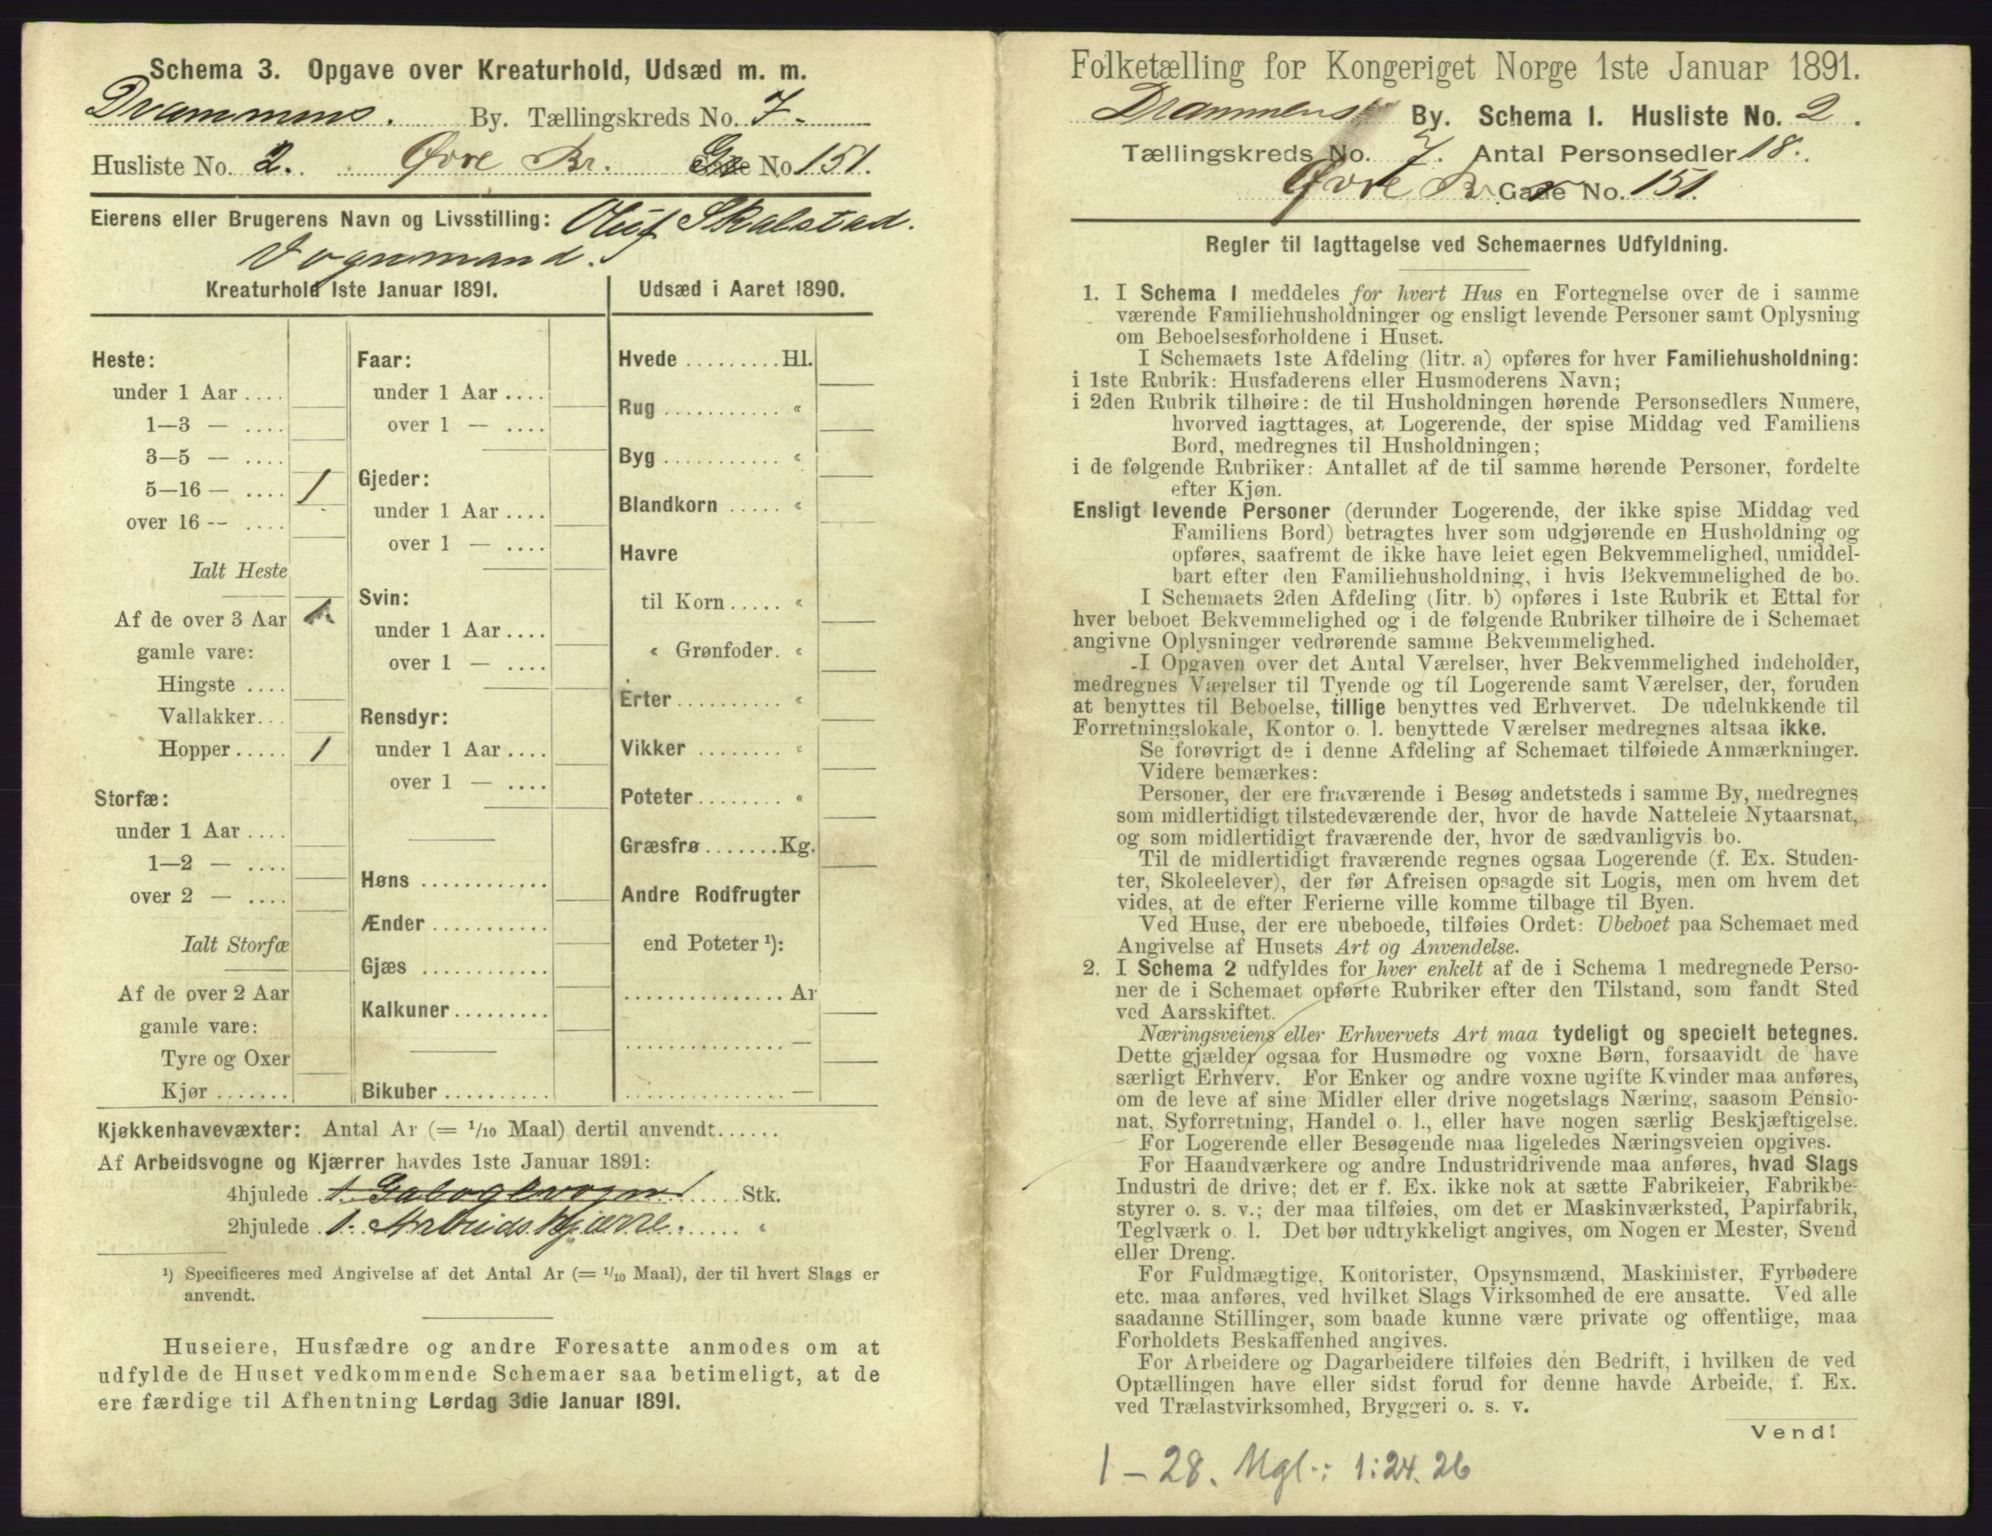 Schema 3. Opgave over Kreaturhold, Udsæd m. m.
Drammens. By. Tællingskreds No. 7.
Husliste No. 2. Øvre Br. Gade No. 151.
Eierens eller Brugerens Navn og Livsstilling: Oluf Skalstad.
Vognmand.
Kreaturhold 1ste Januar 1891.
Heste:
under 1 Aar ....
1—3 — ....
3—5 — ....
5—16 — .... 1
over 16 -- ....
Ialt Heste
Af de over 3 Aar
gamle vare:
Hingste ....
Vallakker...
Hopper..... 1
Storfæ:
under 1 Aar ....
1—2 — ....
over 2 — ....
Ialt Storfæ
Af de over 2 Aar
gamle vare:
Tyre og Oxer
Kjør .......
Faar:
under 1 Aar ....
over 1 — ....
Gjeder:
under 1 Aar ....
over 1 — ....
Svin:
under 1 Aar ....
over 1 — ....
Rensdyr:
under 1 Aar ....
over 1 — ....
Høns ............
Ænder ...........
Gjæs ............
Kalkuner.........
Bikuber ..........
Udsæd i Aaret 1890.
Hvede .........Hl.
Rug ........... «
Byg ........... «
Blandkorn ..... «
Havre
til Korn..... «
« Grønfoder. «
Erter.......... «
Vikker ........ «
Poteter........ «
Græsfrø .......Kg.
Andre Rodfrugter
end Poteter ¹):
............... Ar
............... —
............... —
Kjøkkenhavevæxter: Antal Ar (= 1/10 Maal) dertil anvendt......
Af Arbeidsvogne og Kjærrer havdes 1ste Januar 1891:
4hjulede ........ Stk.
2hjulede 1. Arbeidskjærre. «
¹) Specificeres med Angivelse af det Antal Ar (= 1/10 Maal), der til hvert Slags er
anvendt.
Huseiere, Husfædre og andre Foresatte anmodes om at
udfylde de Huset vedkommende Schemaer saa betimeligt, at de
ere færdige til Afhentning Lørdag 3die Januar 1891.
Folketælling for Kongeriget Norge 1ste Januar 1891.
Drammens By. Schema 1. Husliste No. 2.
Tællingskreds No. 7. Antal Personsedler 18.
Øvre Br Gade No. 151.
Regler til Iagttagelse ved Schemaernes Udfyldning.
1. I Schema 1 meddeles for hvert Hus en Fortegnelse over de i samme
værende Familiehusholdninger og ensligt levende Personer samt Oplysning
om Beboelsesforholdene i Huset.
I Schemaets 1ste Afdeling (litr. a) opføres for hver Familiehusholdning:
i 1ste Rubrik: Husfaderens eller Husmoderens Navn;
i 2den Rubrik tilhøire: de til Husholdningen hørende Personsedlers Numere,
hvorved iagttages, at Logerende, der spise Middag ved Familiens
Bord, medregnes til Husholdningen;
i de følgende Rubriker: Antallet af de til samme hørende Personer, fordelte
efter Kjøn.
Ensligt levende Personer (derunder Logerende, der ikke spise Middag ved
Familiens Bord) betragtes hver som udgjørende en Husholdning og
opføres, saafremt de ikke have leiet egen Bekvemmelighed, umiddel-
bart efter den Familiehusholdning, i hvis Bekvemmelighed de bo.
I Schemaets 2den Afdeling (litr. b) opføres i 1ste Rubrik et Ettal for
hver beboet Bekvemmelighed og i de følgende Rubriker tilhøire de i Schemaet
angivne Oplysninger vedrørende samme Bekvemmelighed.
I Opgaven over det Antal Værelser, hver Bekvemmelighed indeholder,
medregnes Værelser til Tyende og til Logerende samt Værelser, der, foruden
at benyttes til Beboelse, tillige benyttes ved Erhvervet. De udelukkende til
Forretningslokale, Kontor o. l. benyttede Værelser medregnes altsaa ikke.
Se forøvrigt de i denne Afdeling af Schemaet tilføiede Anmærkninger.
Videre bemærkes:
Personer, der ere fraværende i Besøg andetsteds i samme By, medregnes
som midlertidigt tilstedeværende der, hvor de havde Natteleie Nytaarsnat,
og som midlertidigt fraværende der, hvor de sædvanligvis bo.
Til de midlertidigt fraværende regnes ogsaa Logerende (f. Ex. Studen-
ter, Skoleelever), der før Afreisen opsagde sit Logis, men om hvem det
vides, at de efter Ferierne ville komme tilbage til Byen.
Ved Huse, der ere ubeboede, tilføies Ordet: Ubeboet paa Schemaet med
Angivelse af Husets Art og Anvendelse.
2. I Schema 2 udfyldes for hver enkelt af de i Schema 1 medregnede Perso-
ner de i Schemaet opførte Rubriker efter den Tilstand, som fandt Sted
ved Aarsskiftet.
Næringsveiens eller Erhvervets Art maa tydeligt og specielt betegnes.
Dette gjælder ogsaa for Husmødre og voxne Børn, forsaavidt de have
særligt Erhverv. For Enker og andre voxne ugifte Kvinder maa anføres,
om de leve af sine Midler eller drive nogetslags Næring, saasom Pensio-
nat, Syforretning, Handel o. l., eller have nogen særlig Beskjæftigelse.
For Logerende eller Besøgende maa ligeledes Næringsveien opgives.
For Haandværkere og andre Industridrivende maa anføres, hvad Slags
Industri de drive; det er f. Ex. ikke nok at sætte Fabrikeier, Fabrikbe-
styrer o. s. v.; der maa tilføies, om det er Maskinværksted, Papirfabrik,
Teglværk o. l. Det bør udtrykkeligt angives, om Nogen er Mester, Svend
eller Dreng.
For Fuldmægtige, Kontorister, Opsynsmænd, Maskinister, Fyrbødere
etc. maa anføres, ved hvilket Slags Virksomhed de ere ansatte. Ved alle
saadanne Stillinger, som baade kunne være private og offentlige, maa
Forholdets Beskaffenhed angives.
For Arbeidere og Dagarbeidere tilføies den Bedrift, i hvilken de ved
Optællingen have eller sidst forud for denne havde Arbeide, f. Ex.
ved Trælastvirksomhed, Bryggeri o. s. v.
Vend!
1 – 28. Mgl.: 1:24.26